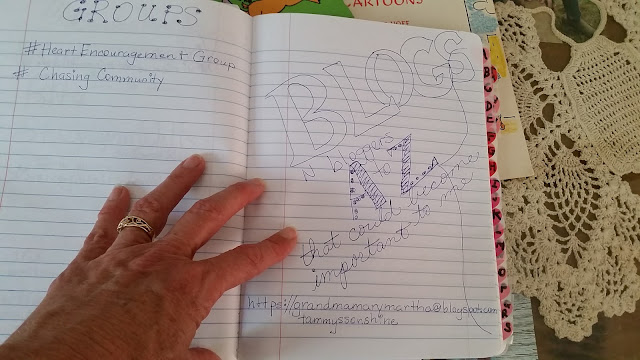 CARTOONS
GROUPS
#Heart Encouragement Group
# Chasing Community
BLOGS
N bloggers
to
that could become
important to me
https://grandmamarymartha@blogspot.com
tammyssonshine